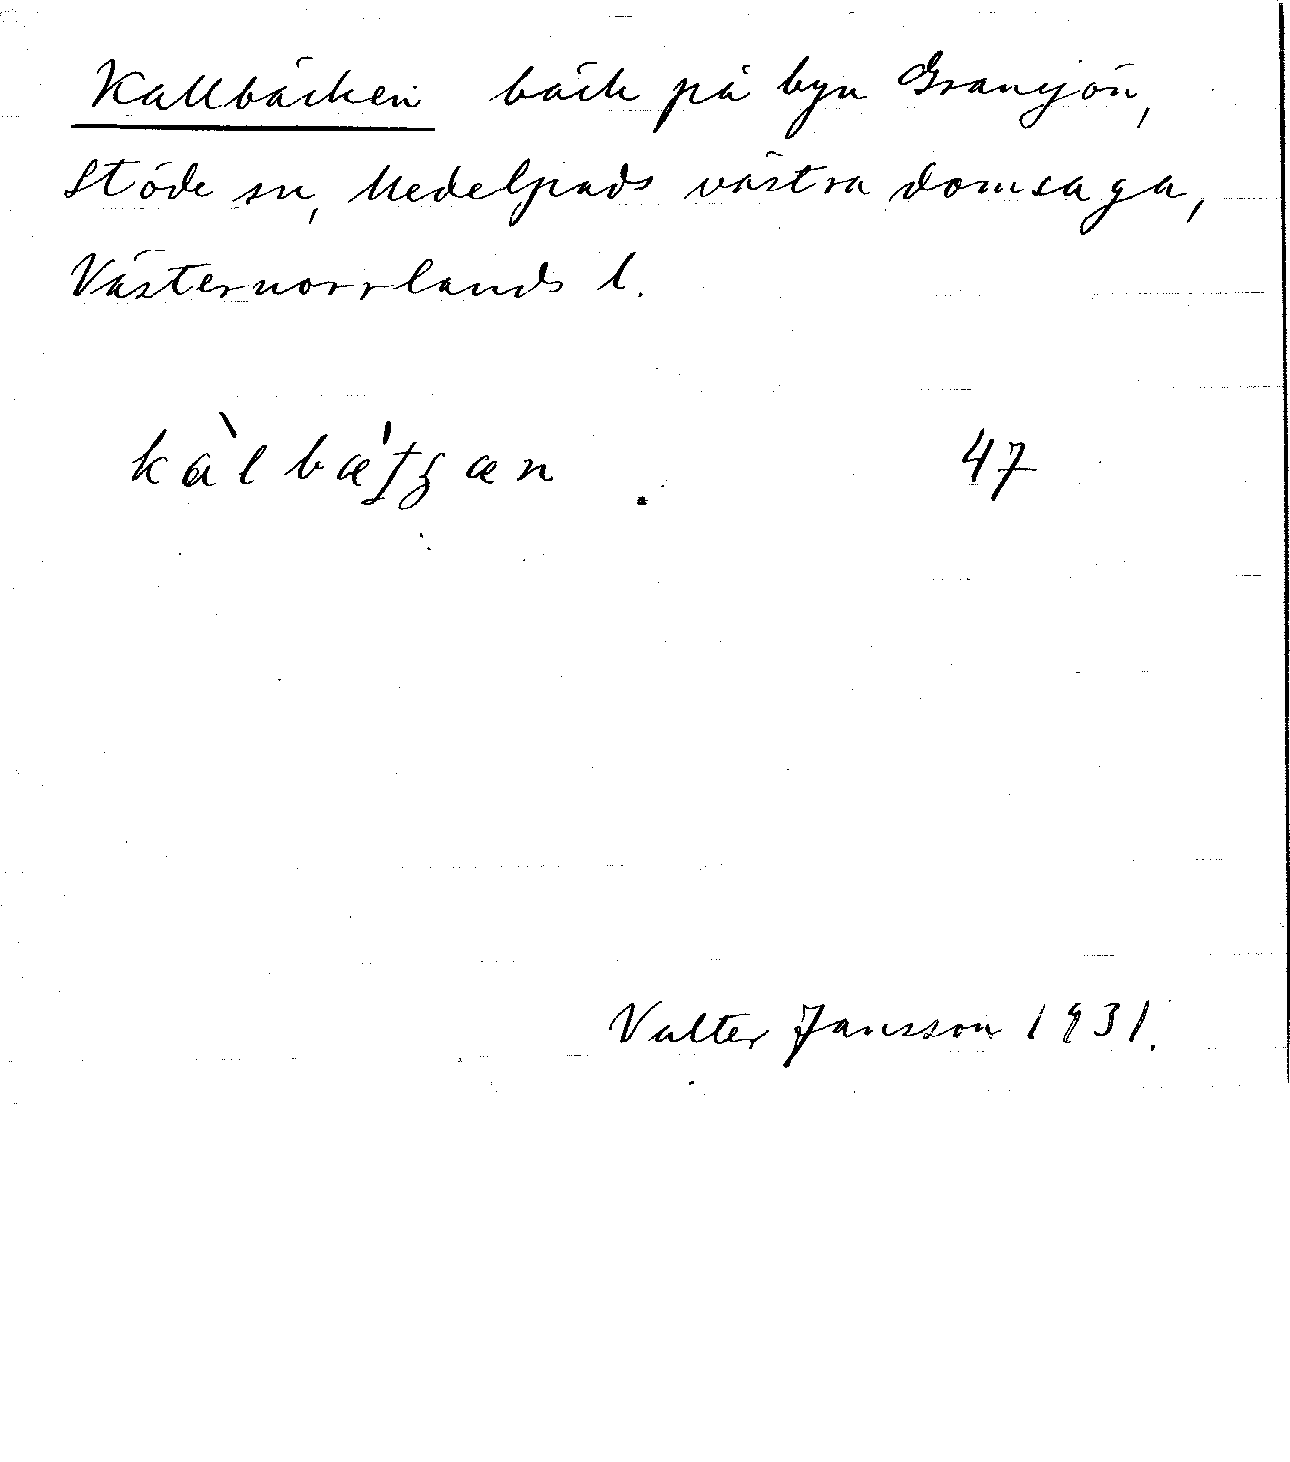 Kallbäcken bäck på byn Gransjön,
Stöde sn, Medelpads västra domsaga,
Västernorrlands l.
47
Valter Jansson 1931.